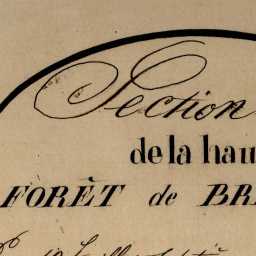 Section
de la hau
FORÊT de BR